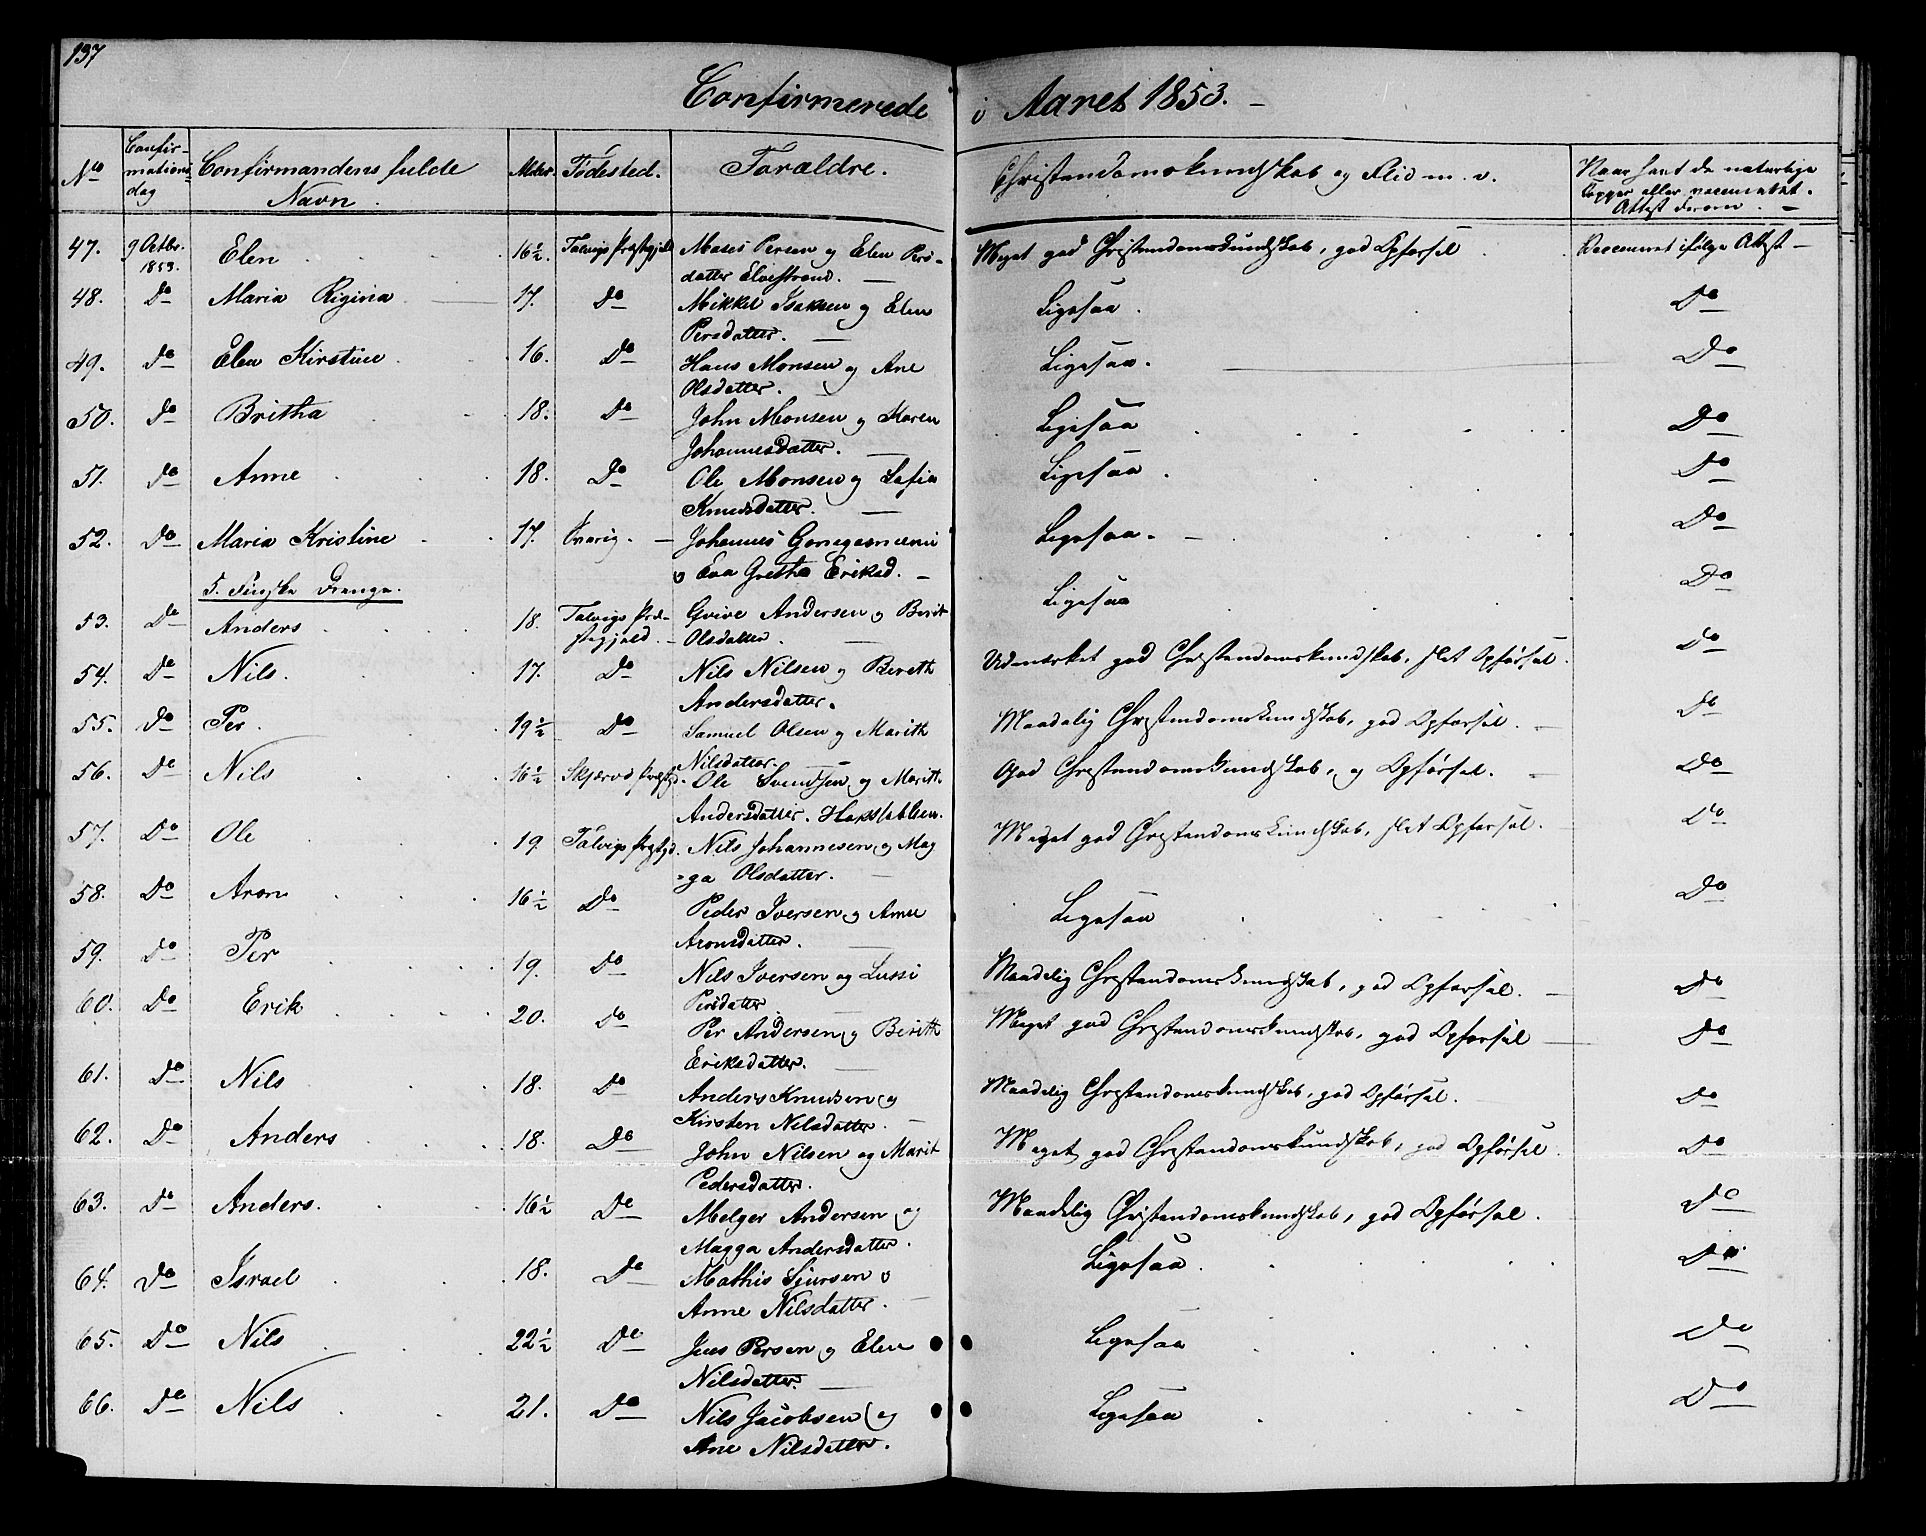 137
Confirmerede i Aaret 1853. -
No Confir-mations dag Confirmandens fulde Navn. Alder. Fødested. Forældre. Christendomskundskab og Flid m. v. Naar havt de naturlige Kopper eller vaccineret. Attest derom. -
47. 9 Octbr. 1853. Elen 16½. Talvigs Præstegjeld Moses Persen og Elen Pers- Meget god Christendomskundskab, god Opførsel Vaccineret ifølge Attest -
datter Elvestrand. -
48. Do Maria Rigina 17. Do Mikkel Isaksen og Elen Ligesaa. Do
Persdatter. -
49. Do Elen Kirstine 16. Do Hans Monsen og Ane Ligesaa. Do
Olsdatter. -
50. Do Britha 18. Do John Monsen og Karen Ligesaa Do
Johannesdatter. -
51. Do Anne 18. Do Ole Monsen og Sofia Ligesaa Do
Knudsdatter. -
52. Do Maria Kristine 17. Johannes Ligesaa. - Do
og Eva Gretha Eriksd. -
5. Finske Drenge. Ligesaa Do
53. Do Anders 18. Talvigs Præ- Andersen og Berit
stegjeld. - Olsdatter. -
54. Do Nils. 17. Do Nils Nilsen og Bereth Udmærket god Christendomskundskab, slet Opførsel. Do
Andersdatter.
55. Do Per. 19½ Do Samuel Olsen og Marith Maadelig Christendomskundskab, god Opførsel. - Do
Nilsdatter. -
56. Do Nils 16½ Skjærvø Præstgjd. Ole Svendsen og Maritt God Christendomskundskab, og Opførsel. - Do
Andersdatter.
57. Do Ole 19. Talvigs Præstgjd. Nils Johannesen og Mag Meget god Christendomskundskab, slet Opførsel. Do
-ga Olsdatter. -
58. Do Aron 16½ Do Peder Iversen og Anne Ligesaa Do
Aronsdatter. -
59. Do Per 19. Do Nils Iversen og Lussi Maadelig Christendomskundskab, god Opførsel. - Do
Persdatter -
60. Do Erik 20. Do Per Andersen og Berith Meget god Christendomskundskab, god Opførsel - Do
Eriksdatter. -
61. Do Nils 18. Do Anders Knudsen og Maadelig Christendomskundskab, god Opførsel. Do
Kirsten Nilsdatter. -
62. Do Anders 18. Do John Nilsen og Marit Meget god Christendomskundskab, god Opførsel. Do
Pedersdatter.
63. Do Anders. 16½ Do Melger Andersen og Maadelig Christendomskundskab, god Opførsel. Do
Magga Andersdatter.
64. Do Israel 18. Do Mathis Sjursen og Ligesaa. Do
Anne Nilsdatter. -
65. Do Nils 22½ Do Jens Persen og Elen Ligesaa Do
Nilsdatter. -
66. Do Nils 21. Do Nils Jacobsen og Ligesaa Do
Ane Nilsdatter.